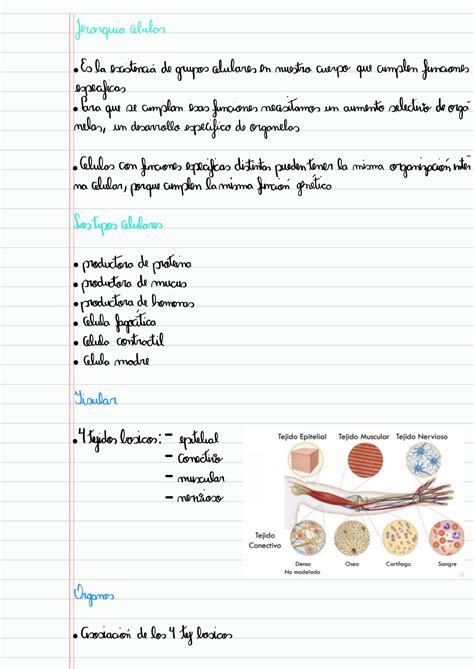 Jerarquia Celular
• Es la existencia de grupos celulares en nuestro cuerpo que cumplen funciones
especificas
• Para que se cumplan esas funciones necesitamos un aumento selectivo de orgá
nelas, un desarrollo especifico de organelas
• Celulas con funciones especificas distintas pueden tener la misma organización inter
na celular, porque cumplen la misma función genético
Los tipos celulares
• productora de proteina
• productora de mucus
• productora de hormonas
• Celula fagocítica
• Celula contractil
• Celula madre
Tisular
• 4 tejidos basicos: - epitelial
- Conectivo
- muscular
- nervioso
Tejido Epitelial Tejido Muscular Tejido Nervioso
Tejido
Conectivo
Denso Oseo Cartílago Sangre
No modelado
Organos
• Asociación de los 4 tej basicos